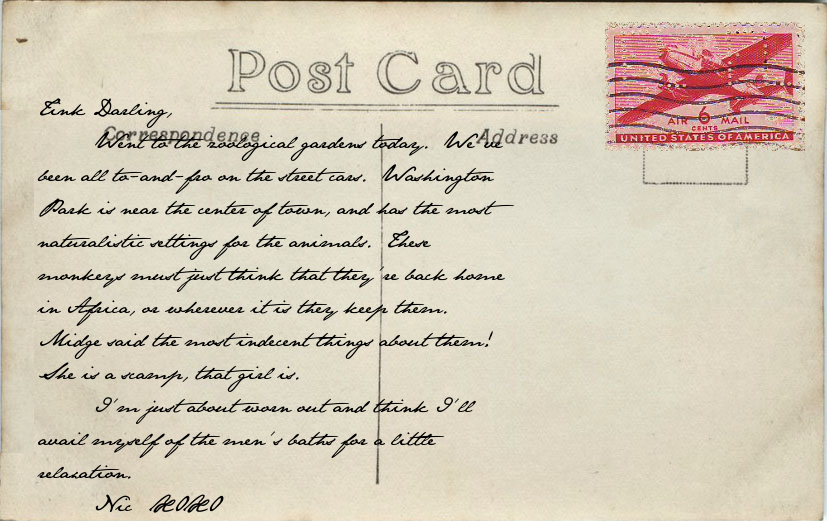 Post Card
AIR 6 MAIL
CENTS
UNITED STATES OF AMERICA
Correspondence
Address
Tink Darling,
Went to the zoological gardens today. We've
been all to-and-fro on the street cars. Washington
Park is near the center of town, and has the most
naturalistic settings for the animals. These
monkeys must just think that they're back home
in Africa, or wherever it is they keep them.
Midge said the most indecent things about them!
She is a scamp, that girl is.
I'm just about worn out and think I'll
avail myself of the men's baths for a little
relaxation.
Nic XOXO